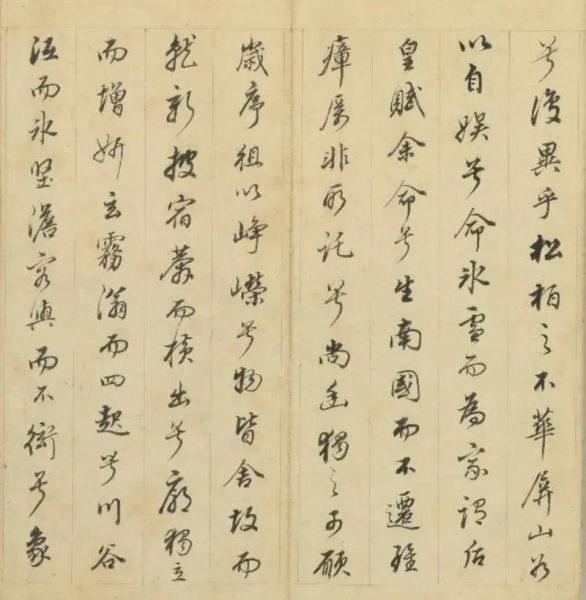 兮復異乎松柏之不華屏山谷
以自娛兮命氷雪而為家謂后
皇賦余命兮生南國而不遷雖
瘴厲非所託兮尚幽獨之可願
歲序徂以崢嶸兮物皆舍故而
就新披宿莽而橫出兮廓獨立
而增妍玄霧滃而四起兮川谷
沍而氷堅澹容與而不衒兮象